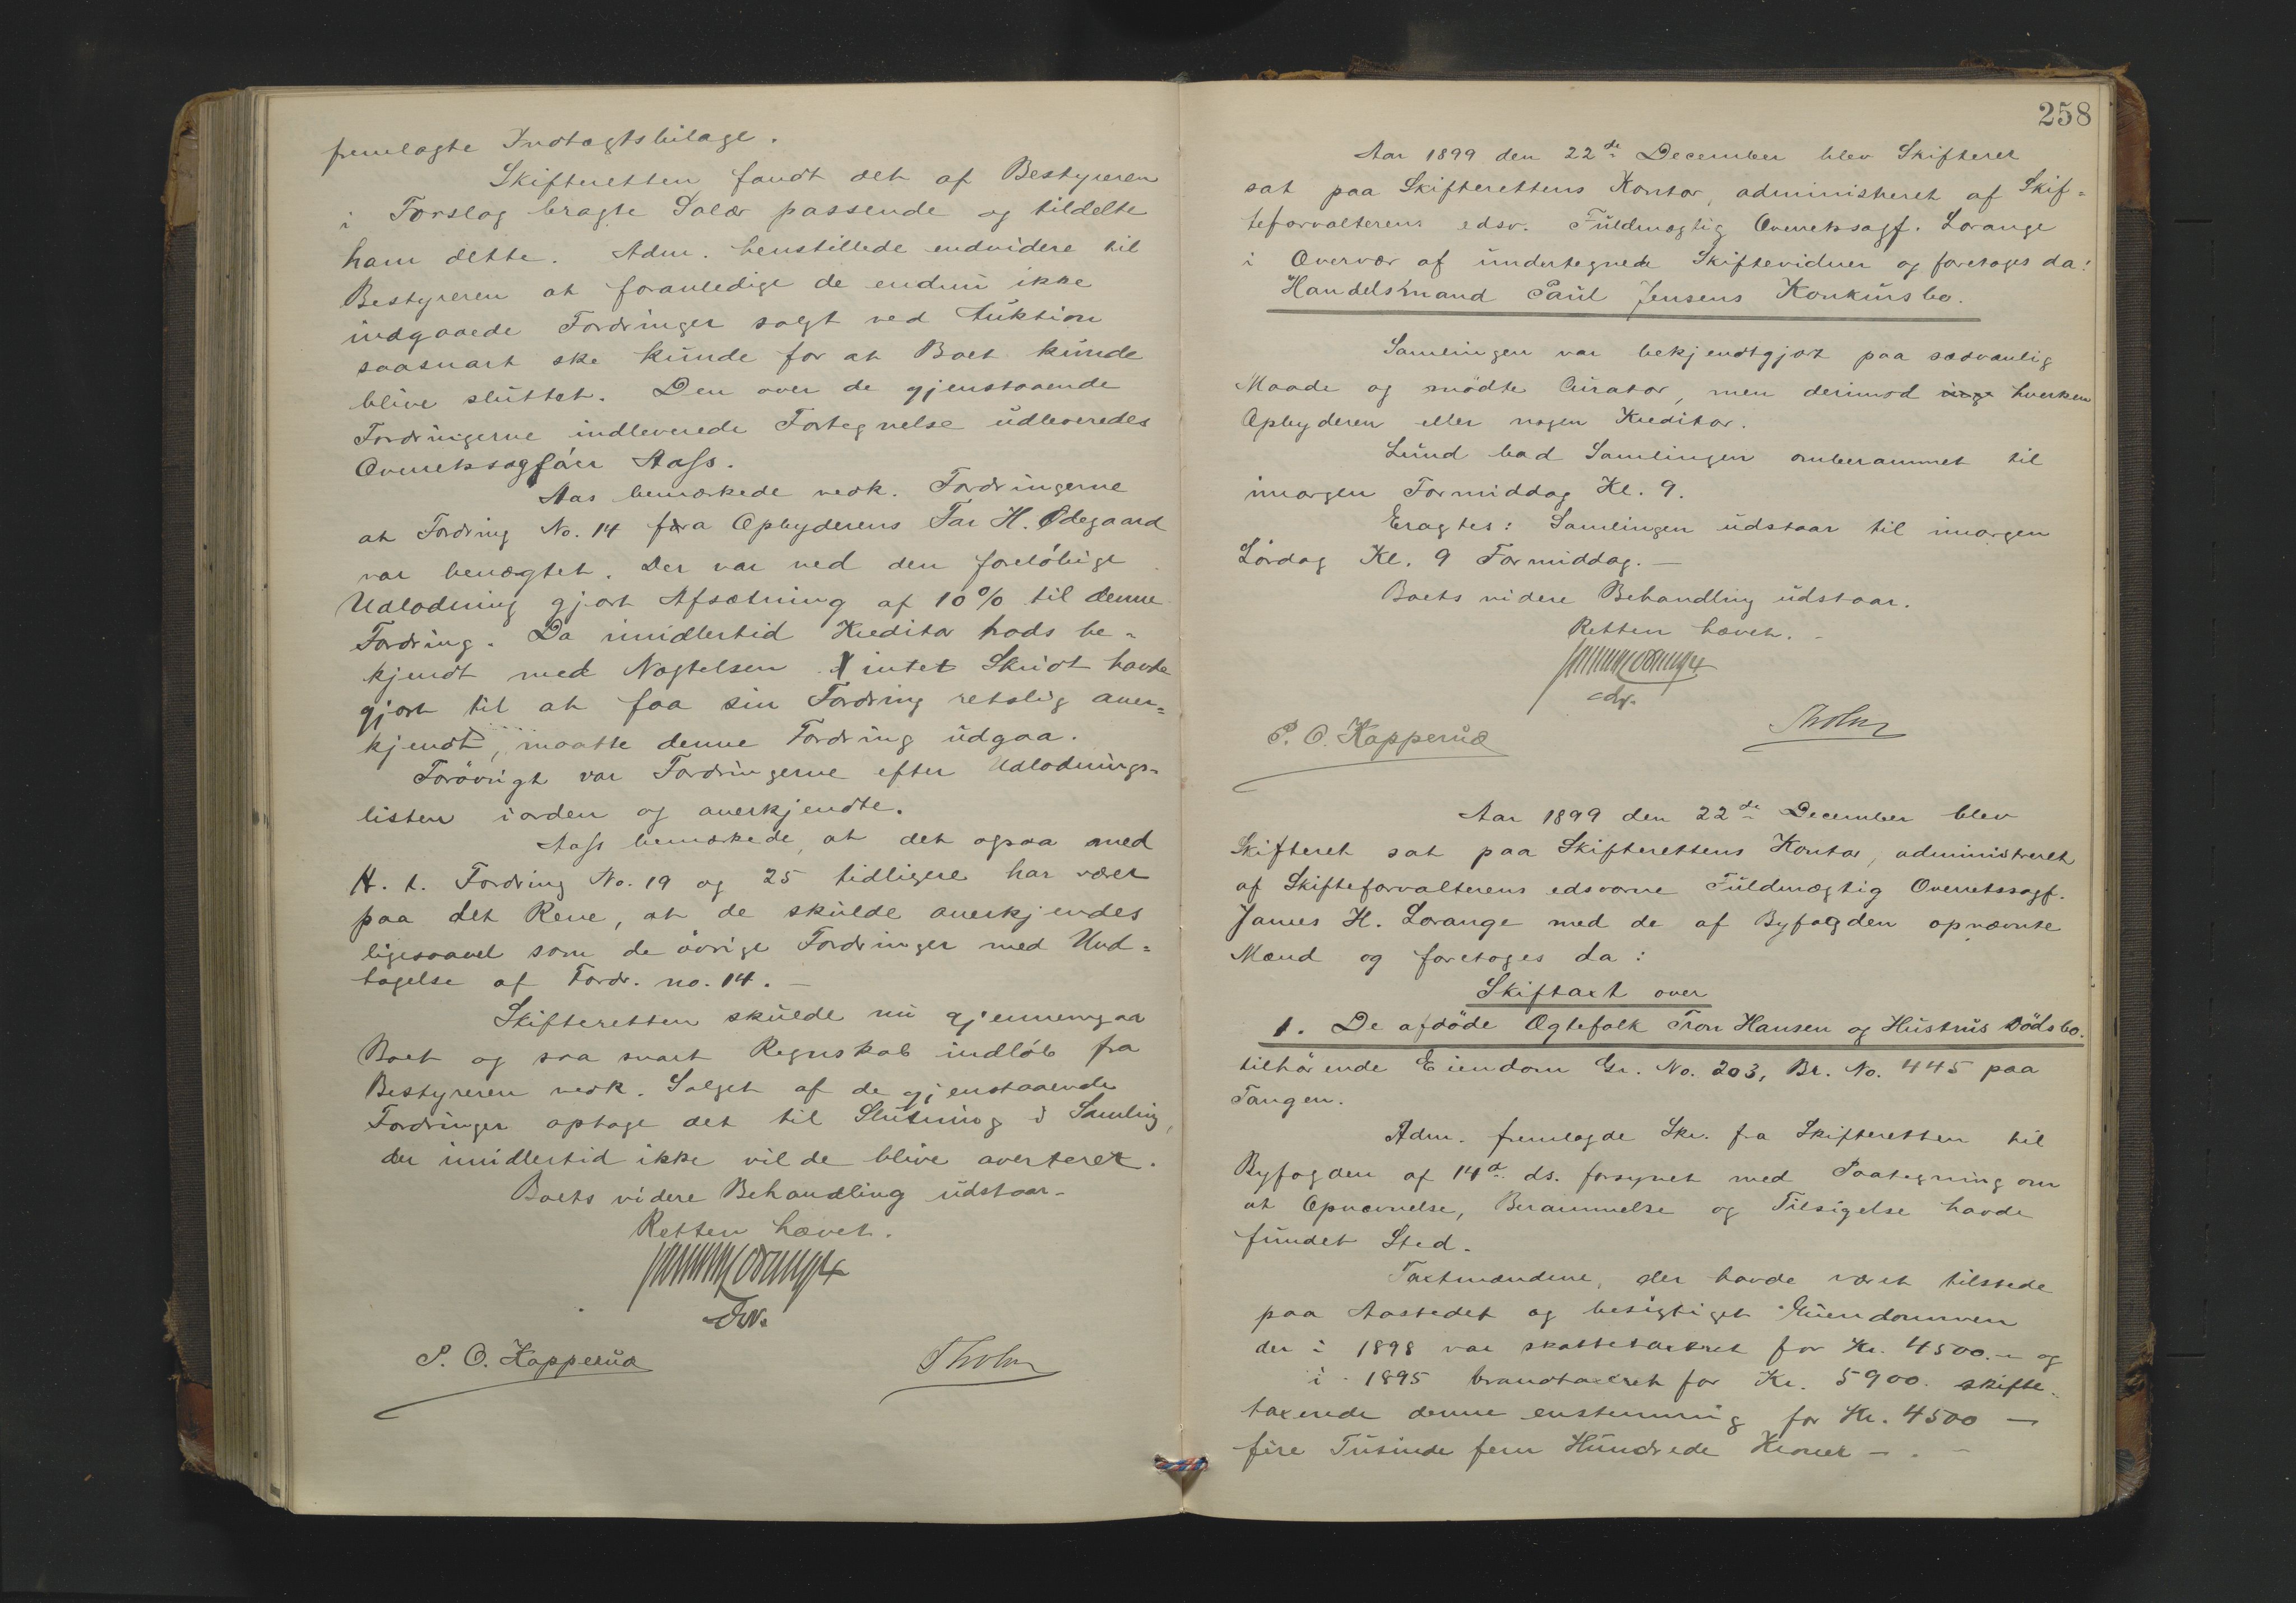 fremlagte Indtægtsbilage.
Skifteretten fandt det af Bestyreren
i Forslag bragte Salær passende og tildelte
ham dette. Adm. henstillede endvidere til
Bestyreren at foranledige de endnu ikke
indgaaede Fordringer solgt ved Auktion
saasnart ske kunde for at Boet kunde
blive sluttet. Den over de gjenstaaende
Fordringerne indleverede Fortegnelse udleveredes
Overretssagfører Aass.
Aas bemærkede vedk. Fordringerne
at Fordring No. 14 fra Opbyderens Far H. Ødegaard
var benægtet. Der var ved den foreløbige
Udlodning gjort Afsætning af 10% til denne
Fordring. Da imidlertid Kreditor trods be-
kjendt med Nægtelsen intet Skridt havde
gjort til at faa sin Fordring retslig aner-
kjendt, maatte denne Fordring udgaa.
Forøvrigt var Fordringerne efter Udlodnings-
listen iorden og anerkjendte.
Aass bemærkede, at det ogsaa med
H. t. Fordring No. 19 og 25 tidligere har været
paa det Rene, at de skulde anerkjendes
ligesaavel som de øvrige Fordringer med Und-
tagelse af Fordr. no. 14. —
Skifteretten skulde nu gjennemgaa
Boet og saa snart Regnskab indløb fra
Bestyreren vedk. Salget af de gjenstaaende
Fordringer optage det til Slutning i Samling,
der imidlertid ikke vilde blive averteret.
Boets videre Behandling udstaar.
Retten hævet.
P. O. Kapperud
Tholm
258
Aar 1899 den 22de December blev Skifteret
sat paa Skifterettens Kontor, administreret af Skif-
teforvalterens edsv. Fuldmægtig Overretssagf. Lorange
i Overvær af undertegnede Skiftevidner og foretoges da:
Handelsmand Paul Jensens Konkursbo.
Samlingen var bekjendtgjort paa sædvanlig
Maade og mødte Curator, men derimod inge hverken
Opbyderen eller nogen Kreditor.
Lund bad Samlingen omberammet til
imorgen Formiddag Kl. 9.
Eragtes: Samlingen udstaar til imorgen
Lørdag Kl. 9 Formiddag. —
Boets videre Behandling udstaar.
Retten hævet. -
P. O. Kapperud
Tholm
Aar 1899 den 22de December blev
Skifteret sat paa Skifterettens Kontor, administreret
af Skifteforvalterens edsvorne Fuldmægtig Overretssagf.
James H. Lorange med de af Byfogden opnævnte
Mænd og foretoges da:
Skiftaxt over
1. De afdøde Ægtefolk Tron Hansen og Hustrus Dødsbo.
tilhørende Eiendom Gr. No. 203, Br. No. 445 paa
Tangen.
Adm. fremlagde Skr. fra Skifteretten til
Byfogden af 14d. ds. forsynet med Paategning om
at Opnævnelse, Berammelse og Tilsigelse havde
fundet Sted.
Taxtmændene, der havde været tilstede
paa Aastedet og besigtiget Eiendommen
der i 1898 var skattetaxeret for Kr. 4500.- og
i 1895 brandtaxeret for Kr. 5900. skifte-
taxerede denne enstemmig for Kr. 4500 —
fire Tusinde fem Hundrede Kroner — . —